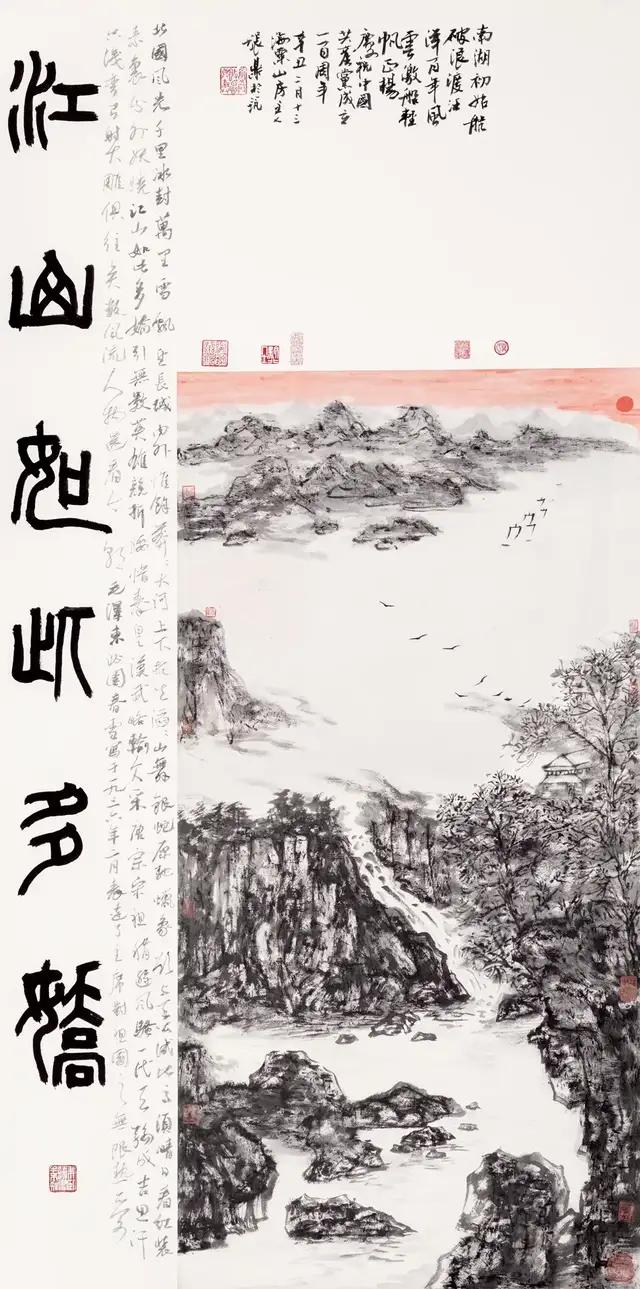 南湖初始航
破浪渡汪
洋百年風
雲激船輕
帆正揚
慶祝中國
共產黨成立
一百周年
辛丑二月十三
海粟山房主人
張鼎於
北國風光千里冰封萬里雪飄望長城內外惟餘莽莽大河上下頓失滔滔山舞銀蛇原馳蠟象欲與天公試比高須晴日看紅裝
素裹分外妖嬈江山如此多嬌引無數英雄競折腰惜秦皇漢武略輸文采唐宗宋祖稍遜風騷一代天驕成吉思汗
只識彎弓射大雕俱往矣數風流人物還看今朝毛澤東沁園春雪寫于一九三六年二月表達了主席對祖國之無限熱愛
江山如此多嬌